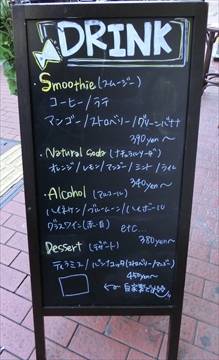 DRINK
・Smoothie (スムージー)
コーヒー/ラテ
マンゴー/ストロベリー/グリーンバナナ
390yen〜
・Natural Soda (ナチュラルソーダ)
オレンジ/レモン/マンゴー/ミント/ライム
340yen〜
・Alcohol (アルコール)
ハイネケン/ブルームーン/ハイボール
グラスワイン(赤・白) etc...
380yen〜
Dessert (デザート)
ティラミス/パンナコッタ(ストロベリー/マンゴー)
450yen〜
自家製